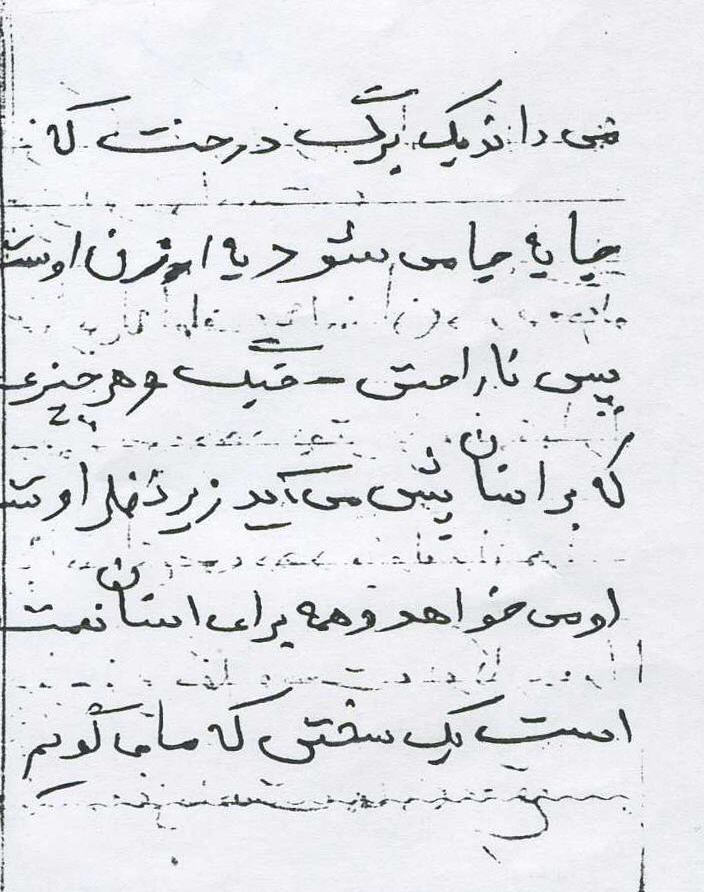 می داند یک برگ درخت که
جا به جا می شود به اذن اوست
پس ناراحتی - جنگ و هر چیزی
که بر انسان پیش می آید زیر نظر اوست
او می خواهد و همه برای انسان نعمت
است یک سختی که ما می گویم